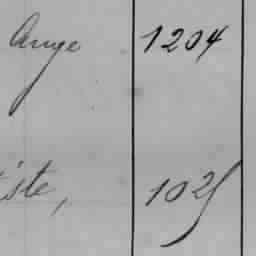 Ange 1204
iste, 1025